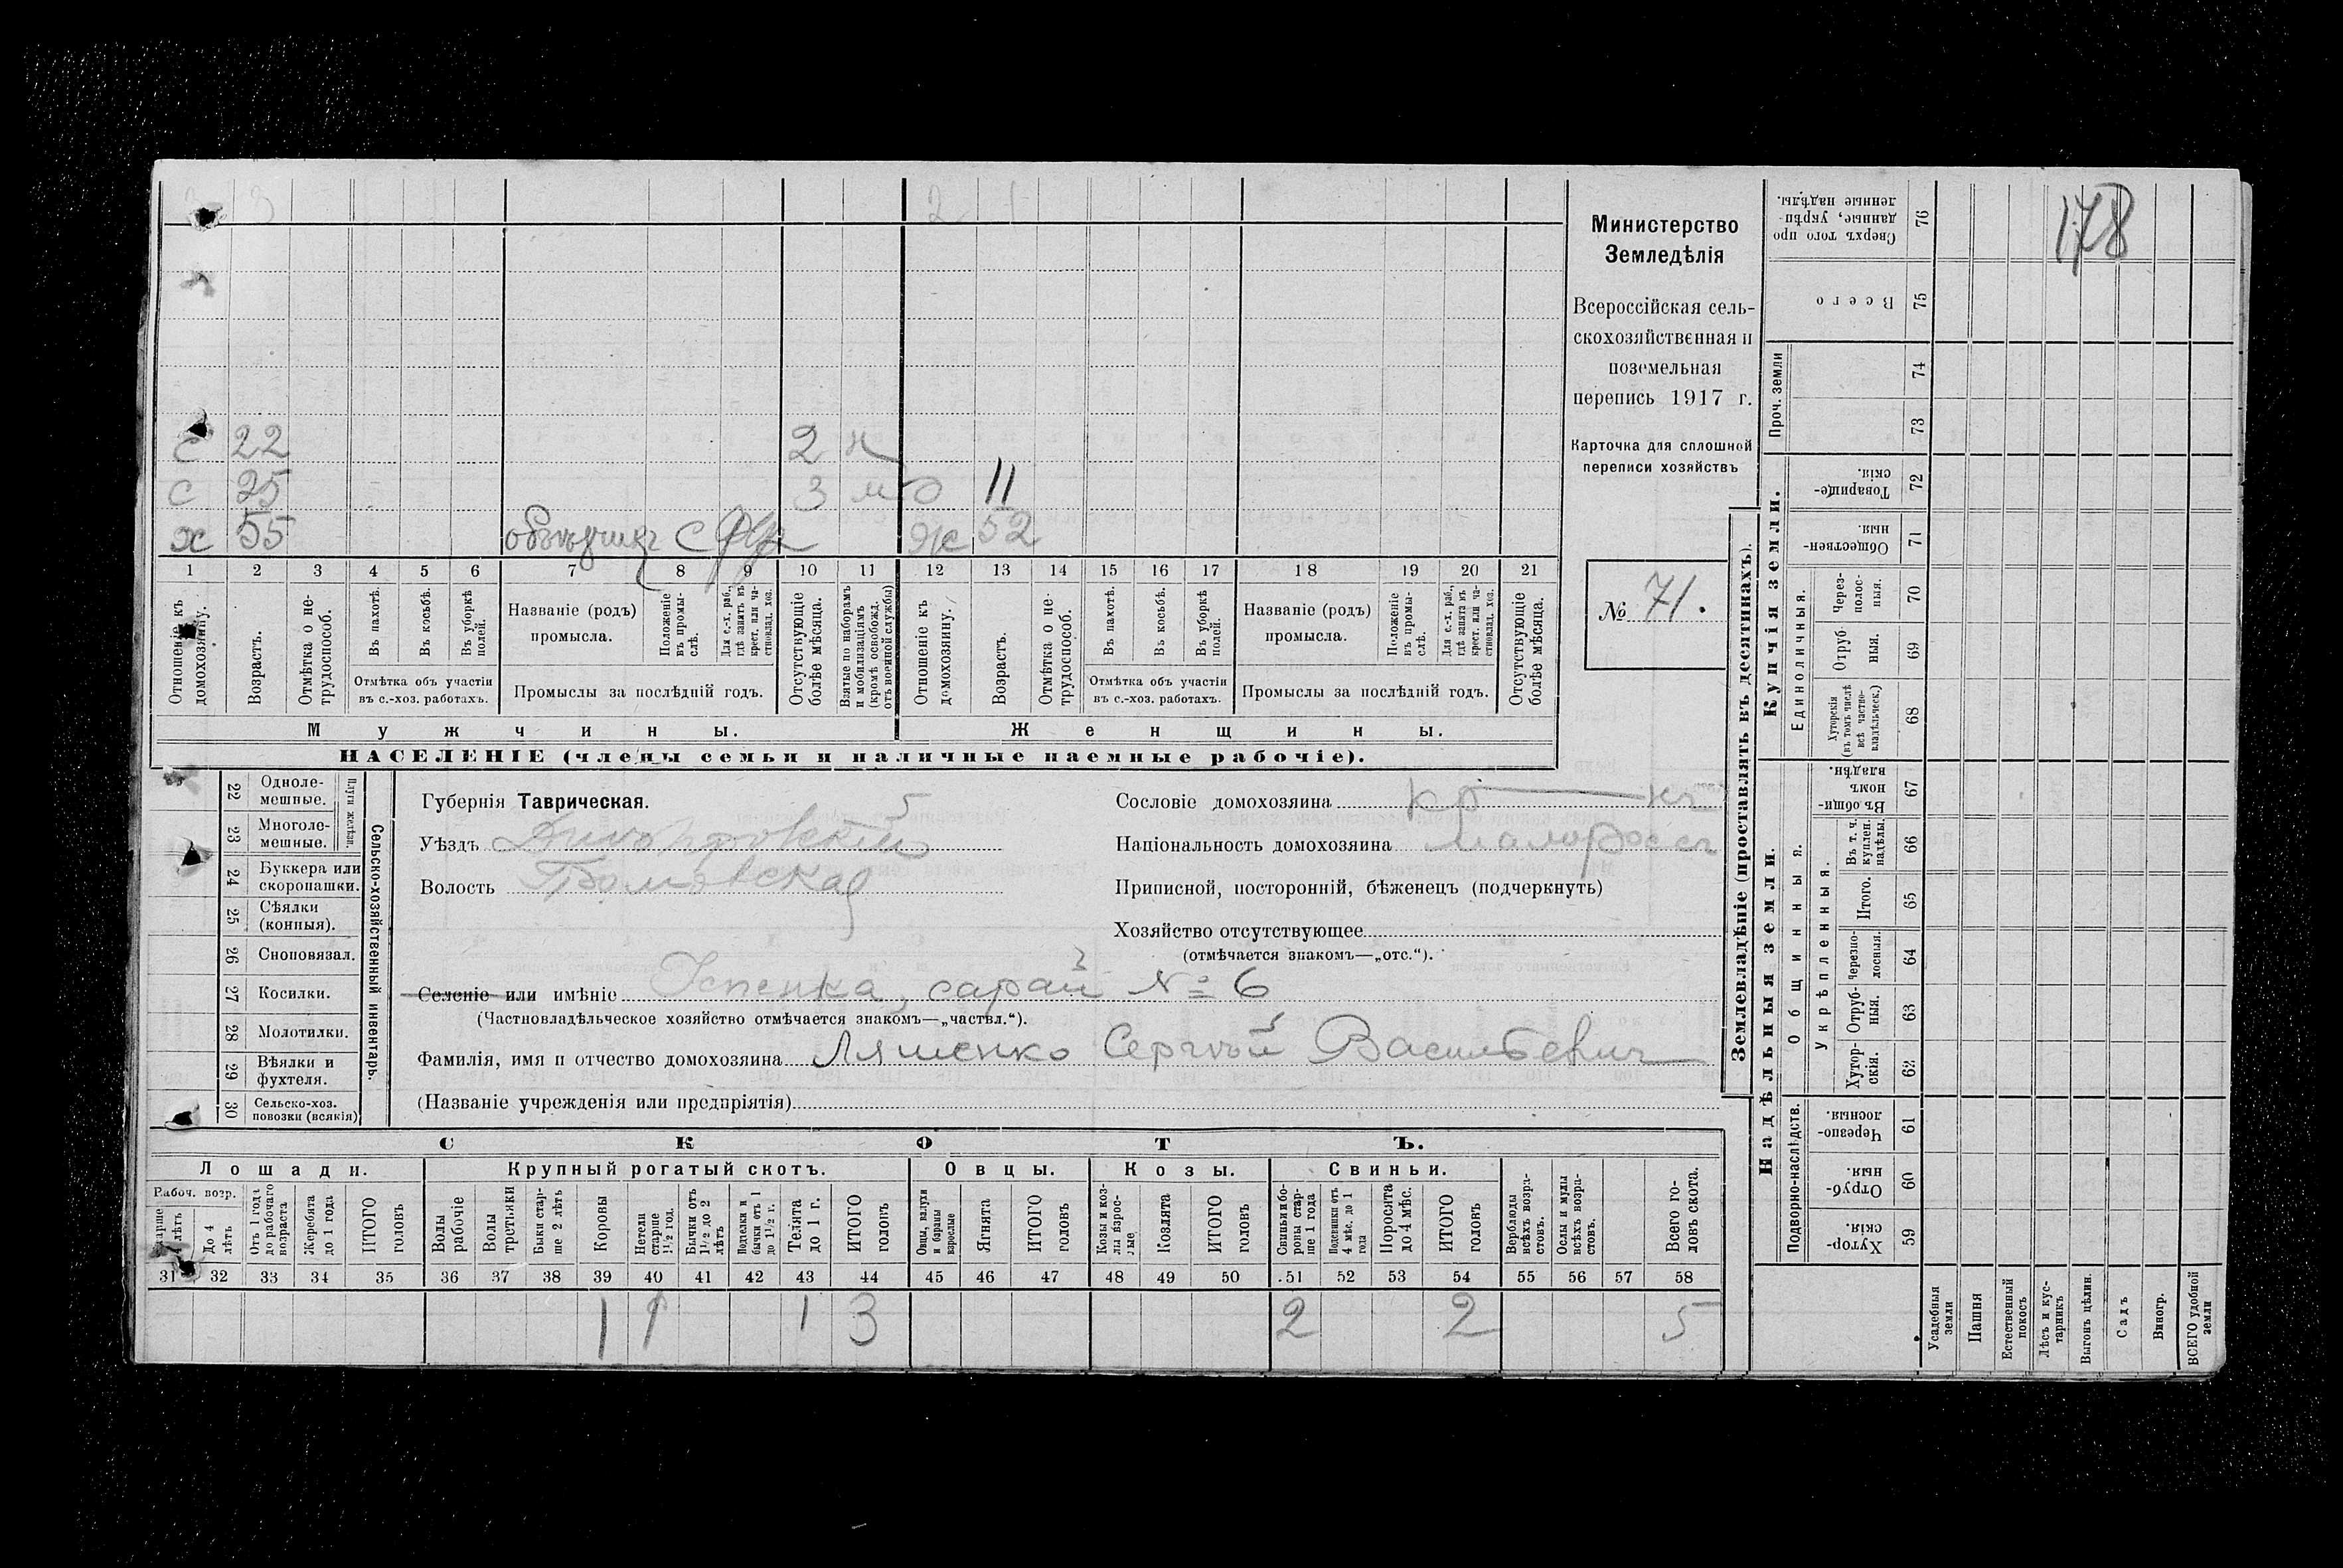 178
3 3 2 1
с 22 2 н
с 25 3 м д 11
х 55 объѣздчикъ с ж 52
1 2 3 4 5 6 7 8 9 10 11 12 13 14 15 16 17 18 19 20 21
Отношеніе къ домохозяину.
Возрастъ.
Отмѣтка о не-
трудоспособ.
Въ пахотѣ.
Въ косьбѣ.
Въ уборкѣ
полей.
Отмѣтка объ участіи
въ с.-хоз. работахъ.
Названіе (родъ)
промысла.
Положеніе
въ промы-
слѣ.
Для с.-х. раб.,
гдѣ занятъ въ
крест. или ча-
стновлад. хоз.
Промыслы за послѣдній годъ.
Отсутствующіе
болѣе мѣсяца.
Взятые по наборамъ
и мобилизаціямъ
(кромѣ освобожд.
отъ военной службы)
Отношеніе къ
домохозяину.
Возрастъ.
Отмѣтка о не-
трудоспособ.
Въ пахотѣ.
Въ косьбѣ.
Въ уборкѣ
полей.
Отмѣтка объ участіи
въ с.-хоз. работахъ.
Названіе (родъ)
промысла.
Положеніе
въ промы-
слѣ.
Для с.-х. раб.,
гдѣ занята въ
крест. или ча-
стновлад. хоз.
Промыслы за послѣдній годъ.
Отсутствующіе
болѣе мѣсяца.
Мужчины.
Женщины.
НАСЕЛЕНІЕ (члены семьи и наличные наемные рабочіе).
Министерство
Земледѣлія
Всероссійская сель-
скохозяйственная и
поземельная
перепись 1917 г.
Карточка для сплошной
переписи хозяйствъ
№ 71.
22 Одноле-
мешные.
23 Многоле-
мешные.
Плуги желѣзн.
24 Буккера или
скоропашки.
25 Сѣялки
(конныя).
26 Сноповязал.
27 Косилки.
28 Молотилки.
29 Вѣялки и
фухтеля.
30 Сельско-хоз.
повозки (всякія)
Сельско-хозяйственный инвентарь.
Губернія Таврическая.
Уѣздъ Днѣпровскій
Волость
Сословіе домохозяина кр-нъ
Національность домохозяина малороссъ
Приписной, посторонній, бѣженецъ (подчеркнуть)
Хозяйство отсутствующее
(отмѣчается знакомъ—„отс.“).
Селеніе или имѣніе Успенка, сарай № 6
(Частновладѣльческое хозяйство отмѣчается знакомъ—„частвл.“).
Фамилія, имя и отчество домохозяина Ляшенко Сергѣй Васильевичъ
(Названіе учрежденія или предпріятія)
СКОТЪ.
Лошади. Крупный рогатый скотъ. Овцы. Козы. Свиньи.
Рабоч. возр.
До 4
лѣтъ
Отъ 1 года
до рабочаго
возраста
Жеребята
до 1 года
ИТОГО
головъ
Волы
рабочіе
Волы
третьяки
Быки стар-
ше 2 лѣтъ
Коровы
Нетели
старше
1½ год.
Бычки отъ
1½ до 2
лѣтъ
Подтелки и
бычки отъ 1
до 1½ г.
Телята
до 1 г.
ИТОГО
головъ
Овцы, валухи
и бараны
взрослые
Ягнята
ИТОГО
головъ
Козы и коз-
лы взрос-
лые
Козлята
ИТОГО
головъ
Свиньи и бо-
ровы стар-
ше 1 года
Подсвинки отъ
4 мѣс. до 1
года
Поросята
до 4 мѣс.
ИТОГО
головъ
Верблюды
всѣхъ возра-
стовъ.
Ослы и мулы
всѣхъ возра-
стовъ.
Всего го-
ловъ скота.
31 32 33 34 35 36 37 38 39 40 41 42 43 44 45 46 47 48 49 50 51 52 53 54 55 56 57 58
1 1 1 3 2 2 5
Землевладѣніе (проставлять въ десятинахъ).
Купчія земли.
Надѣльныя земли.
76 Сверхъ того про
данные, укрѣп-
ленные надѣлы.
75 Всего
Проч. земли
74
73
72 Товарище-
скія.
71 Обществен-
ныя.
Единоличныя.
70 Через-
полос-
ныя.
69 Отруб-
ныя.
68 Хуторскія
(въ томъ числѣ
всѣ частно-
владѣльческ.)
67 Въ общи-
номъ
владѣн.
Общинныя.
Укрѣпленныя.
66 Въ т. ч.
куплен.
надѣлы.
65 Итого.
64 Черезпо-
лосныя.
63 Отруб-
ныя.
62 Хутор-
скія.
Подворно-наслѣдств.
61 Черезпо-
лосныя
60 Отруб-
ныя.
59 Хутор-
скія.
Усадебныя
земли
Пашня
Естественный
покосъ
Лѣсъ и кус-
тарникъ
Выгонъ цѣлин.
Садъ
Виногр.
ВСЕГО удобной
земли